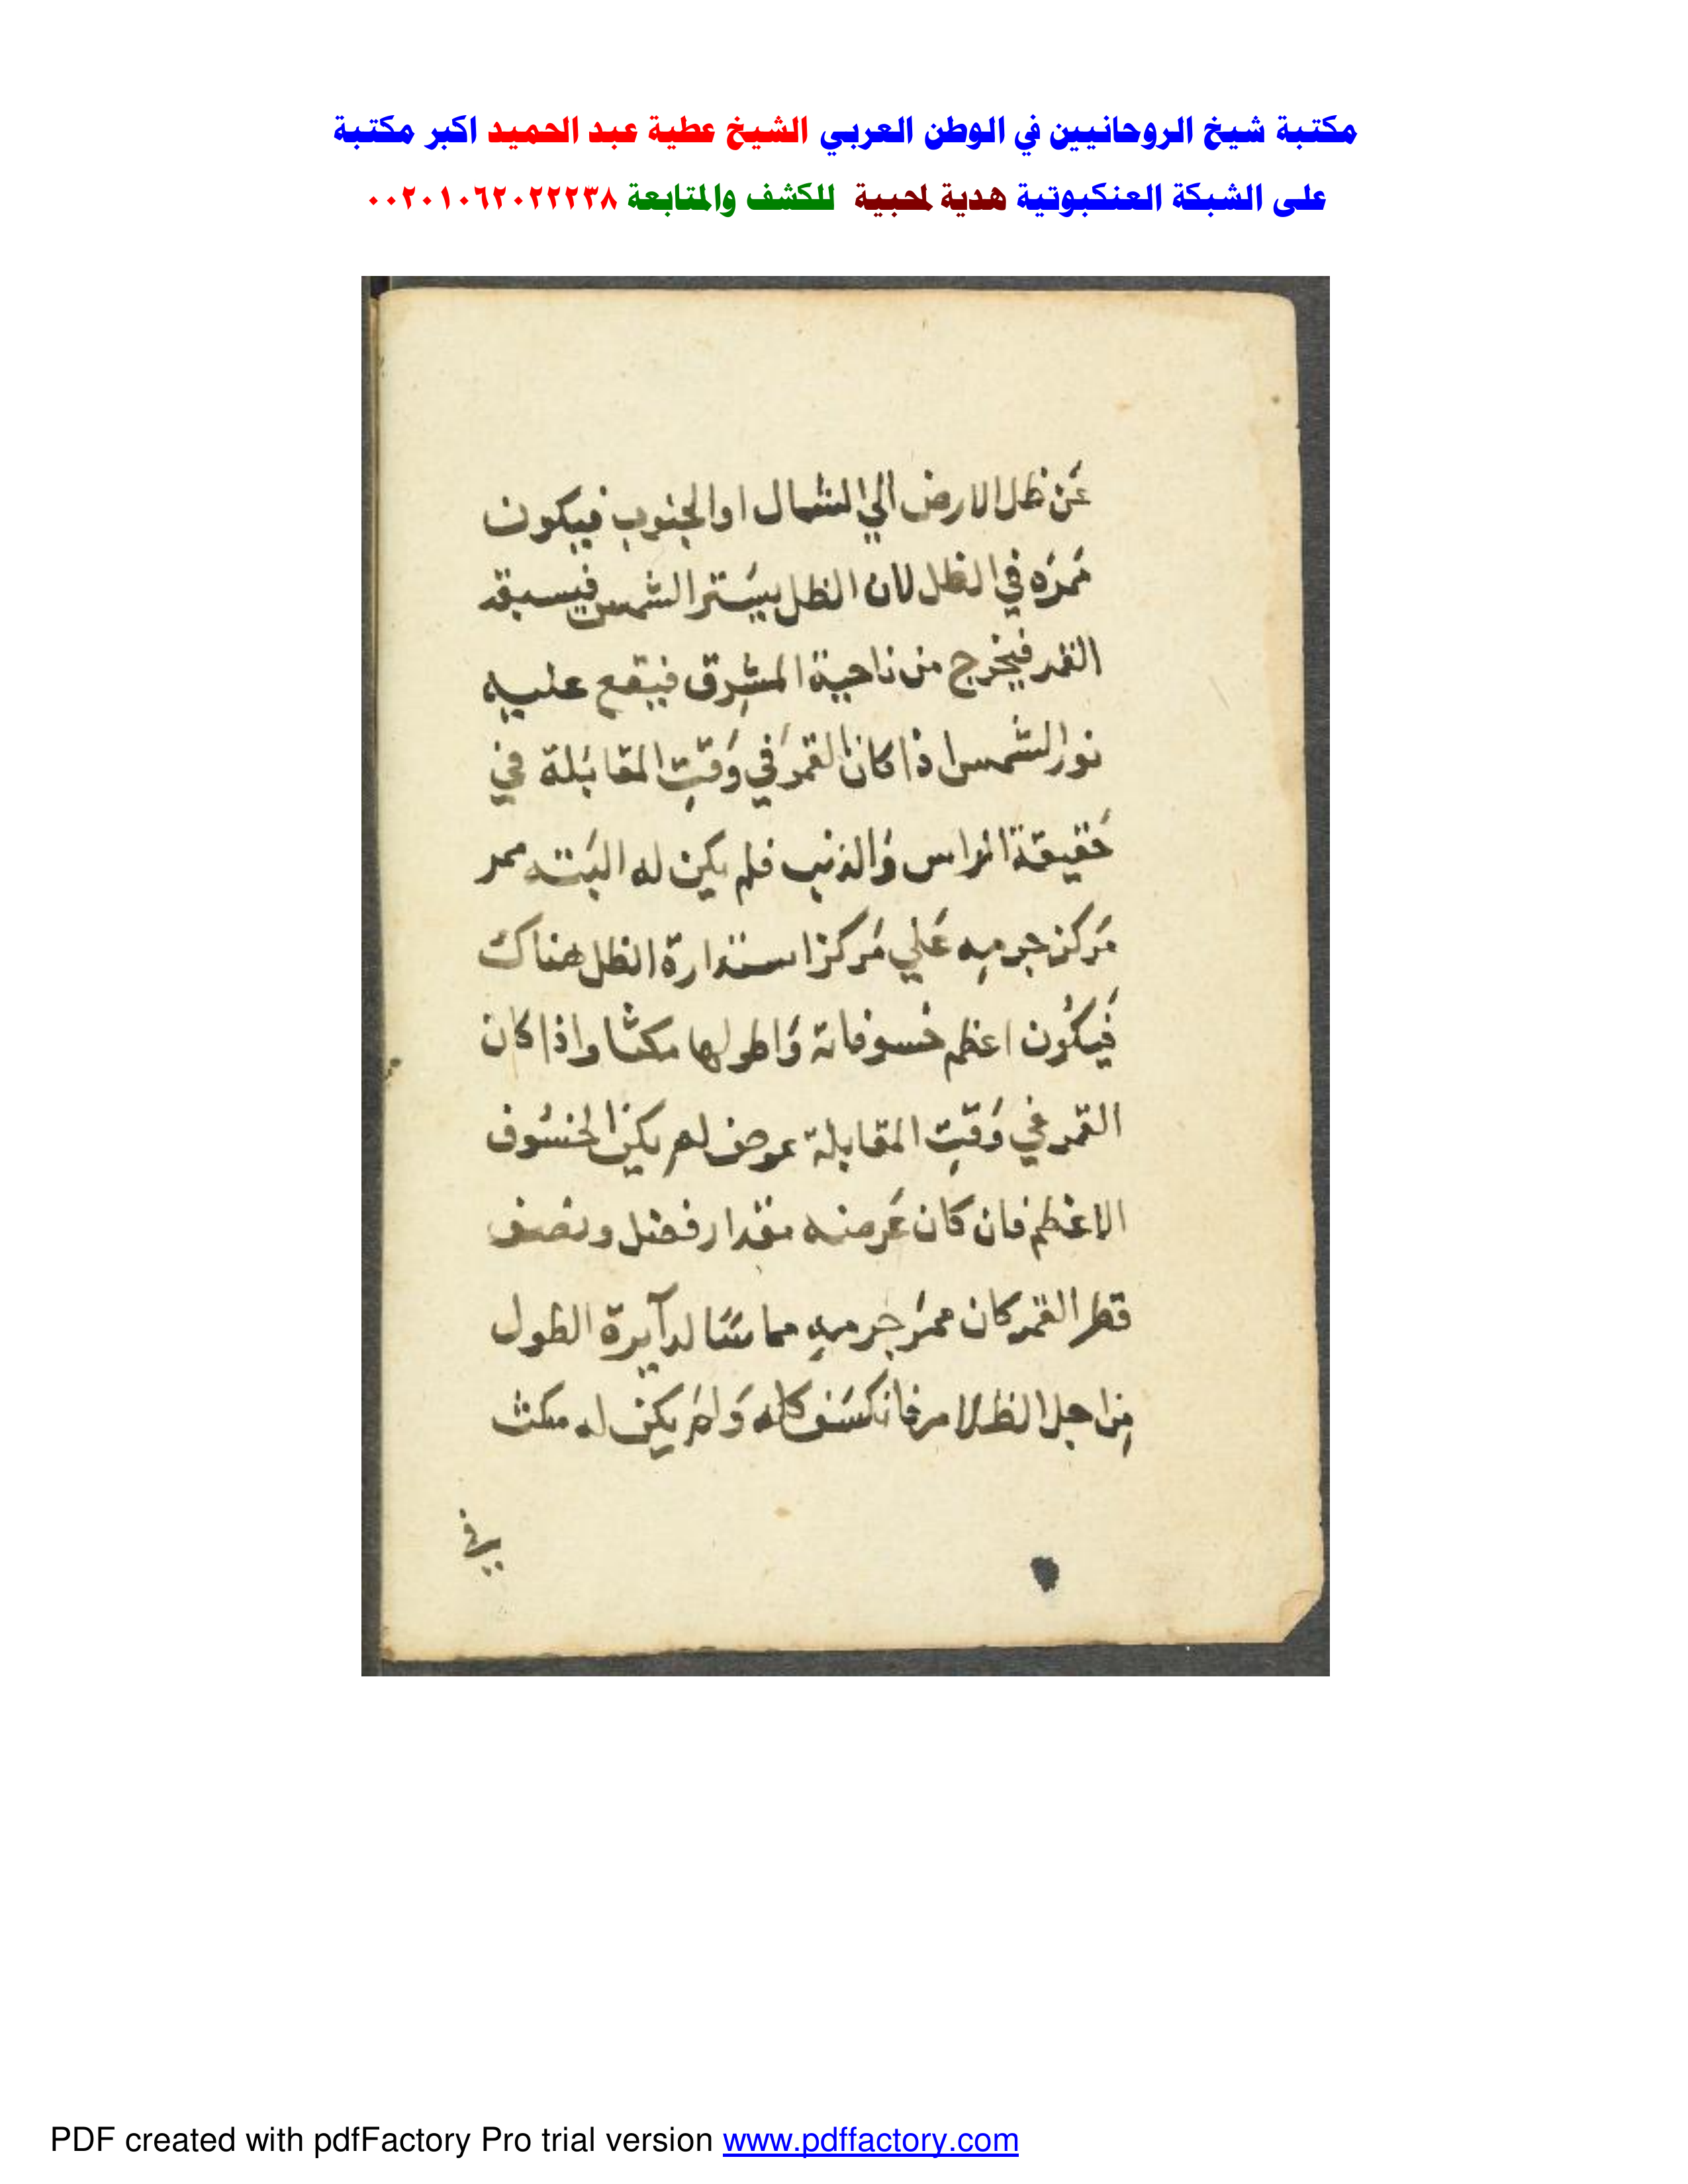 مكتبة شيخ الروحانيين في الوطن العربي الشيخ عطية عبد الحميد اكبر مكتبة
على الشبكة العنكبوتية هدية لمحبية للكشف والمتابعة ٠٠٢٠١٠٦٢٠٢٢٢٣٨
عَن ظل الارض الي الشمال او الجنوب فيكون
ممرَه في الظل لان الظل يسَتر الشمس فيسبقه
القمر فيخرج من ناحية المشرق فيقع عليه
نور الشمس اذا كان القمرَ في وَقتِ المقابَلة في
حَقيقة الراس وَالذنب فلم يكن له البَته ممر
مَركز جرمِه عَلي مَركز استدارة الظل هناك
فَيكُون اعظم خسوفاته وَاطولها مكثا واذا كان
القمر في وَقتِ المقابلة عرض لم يكن الخسُوف
الاعظم فان كان عَرضه مقدار فضل ونصف
قطر القمر كان ممرَ جرمهِ مماسًا لدآيرة الطول
مِن اجل الظلام فانكسَف كله وَلم يكن له مكث
PDF created with pdfFactory Pro trial version www.pdffactory.com